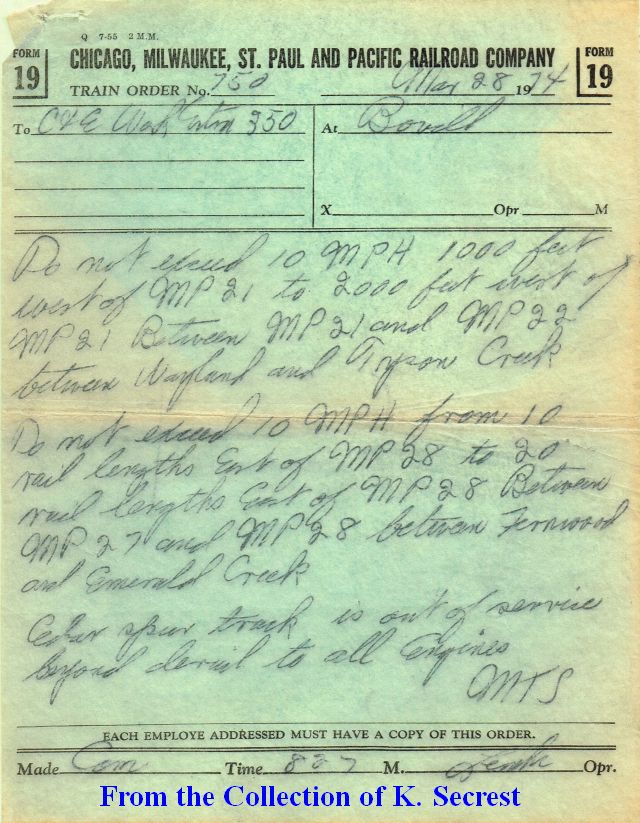 Q 7-55 2 M.M.
FORM 19
CHICAGO, MILWAUKEE, ST. PAUL AND PACIFIC RAILROAD COMPANY
FORM 19
TRAIN ORDER No. 750 Mar 28 1974
To C&E Work Extra 350
At Bovill
X Opr M
Do not exceed 10 MPH 1000 feet
west of MP 21 to 2000 feet west of
MP 21 Between MP 21 and MP 22
between Wayland and Tyson Creek
Do not exceed 10 MPH from 10
rail lengths East of MP 28 to 20
rail lengths East of MP 28 Between
MP 27 and MP 28 between Fernwood
and Emerald Creek
Cedar spur track is out of service
beyond derail to all Engines
MTS
EACH EMPLOYE ADDRESSED MUST HAVE A COPY OF THIS ORDER.
Made Com Time 827 M. Opr.
From the Collection of K. Secrest